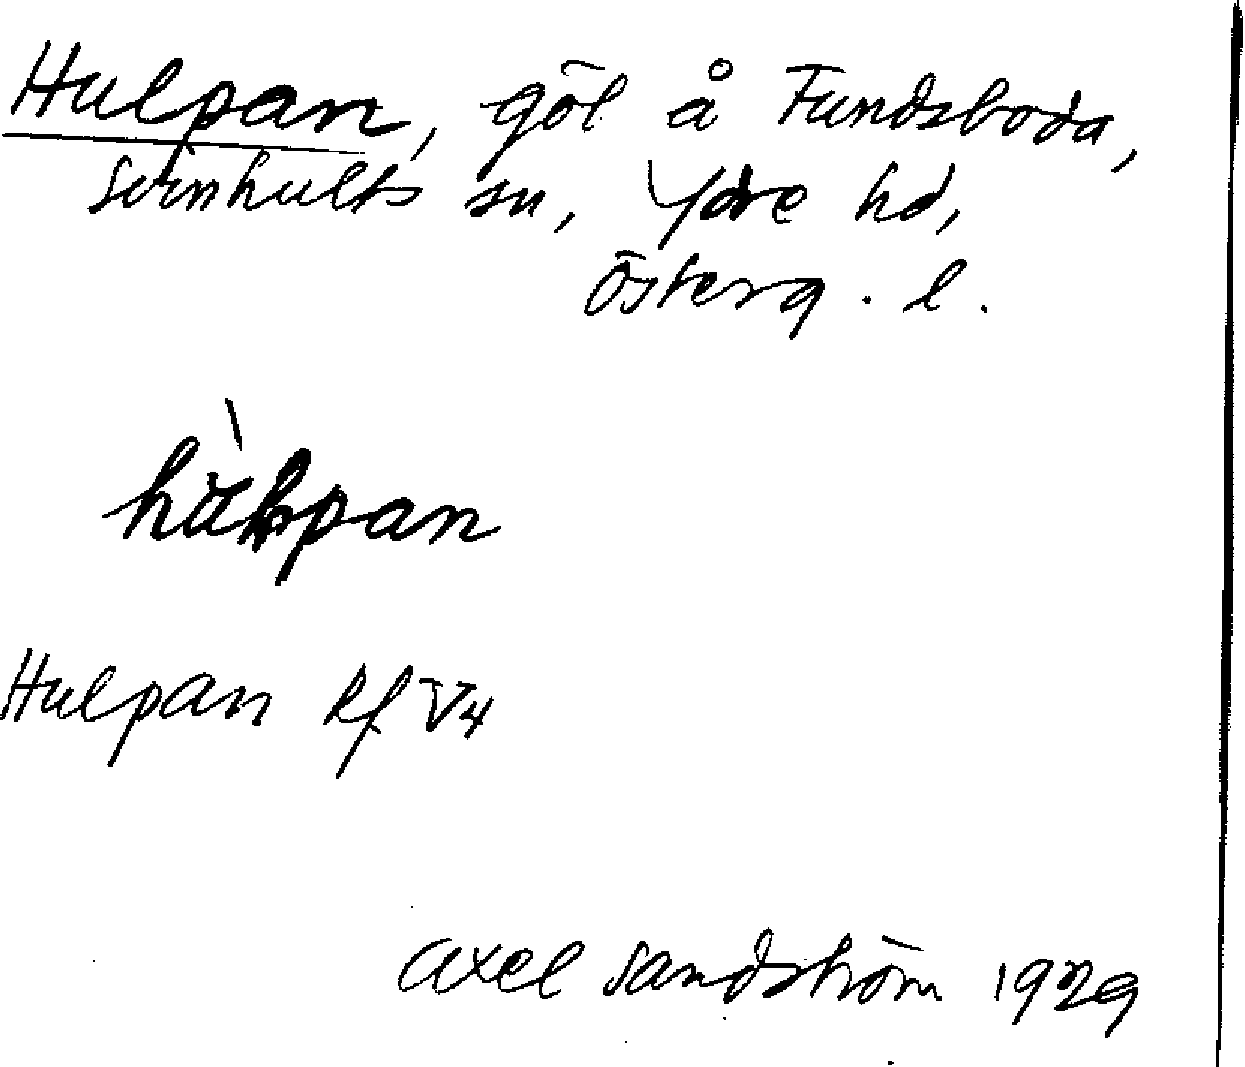 Hulpan, göl å Fundsboda,
Svinhults sn, Ydre hd,
Österg. l.
Hulpan Rf V4
Axel Sandström 1929